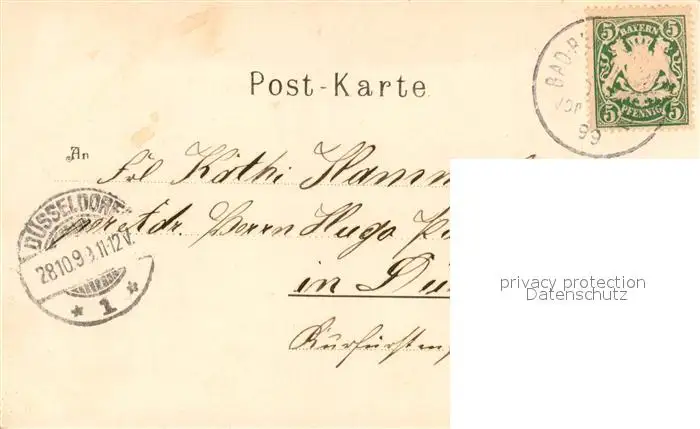 5 BAYERN 5
5 PFENNIG 5
BAD-
99
Post-Karte
An
Frl Käthi Hamm
per Adr. Herrn Hugo
in Dü
Kurfürsten
DÜSSELDORF
28.10.99.11-12V.
* 1 *
privacy protection
Datenschutz